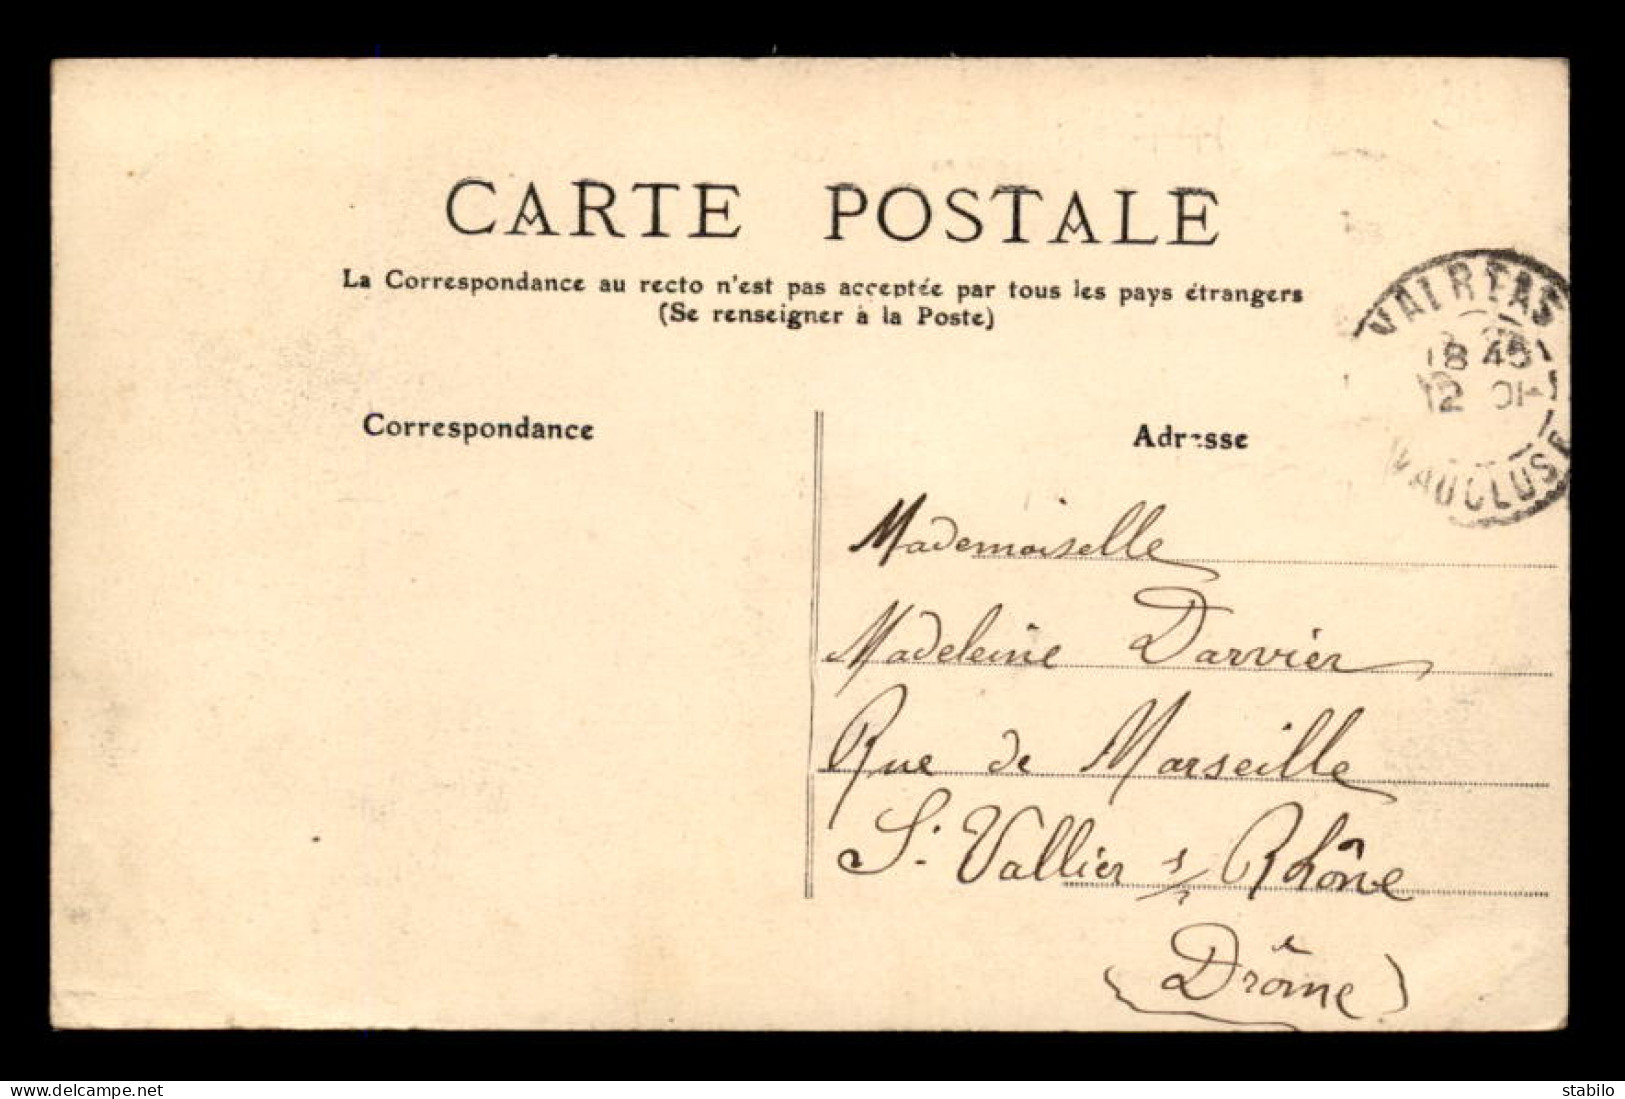 CARTE POSTALE
La Correspondance au recto n'est pas acceptée par tous les pays étrangers
(Se renseigner à la Poste)
Correspondance
Adresse
VALREAS
18 45
12
VAUCLUSE
Mademoiselle
Madeleine Darvier
Rue de Marseille
St. Vallier s/ Rhône
(Drôme)
Delcampe.net
stabilo